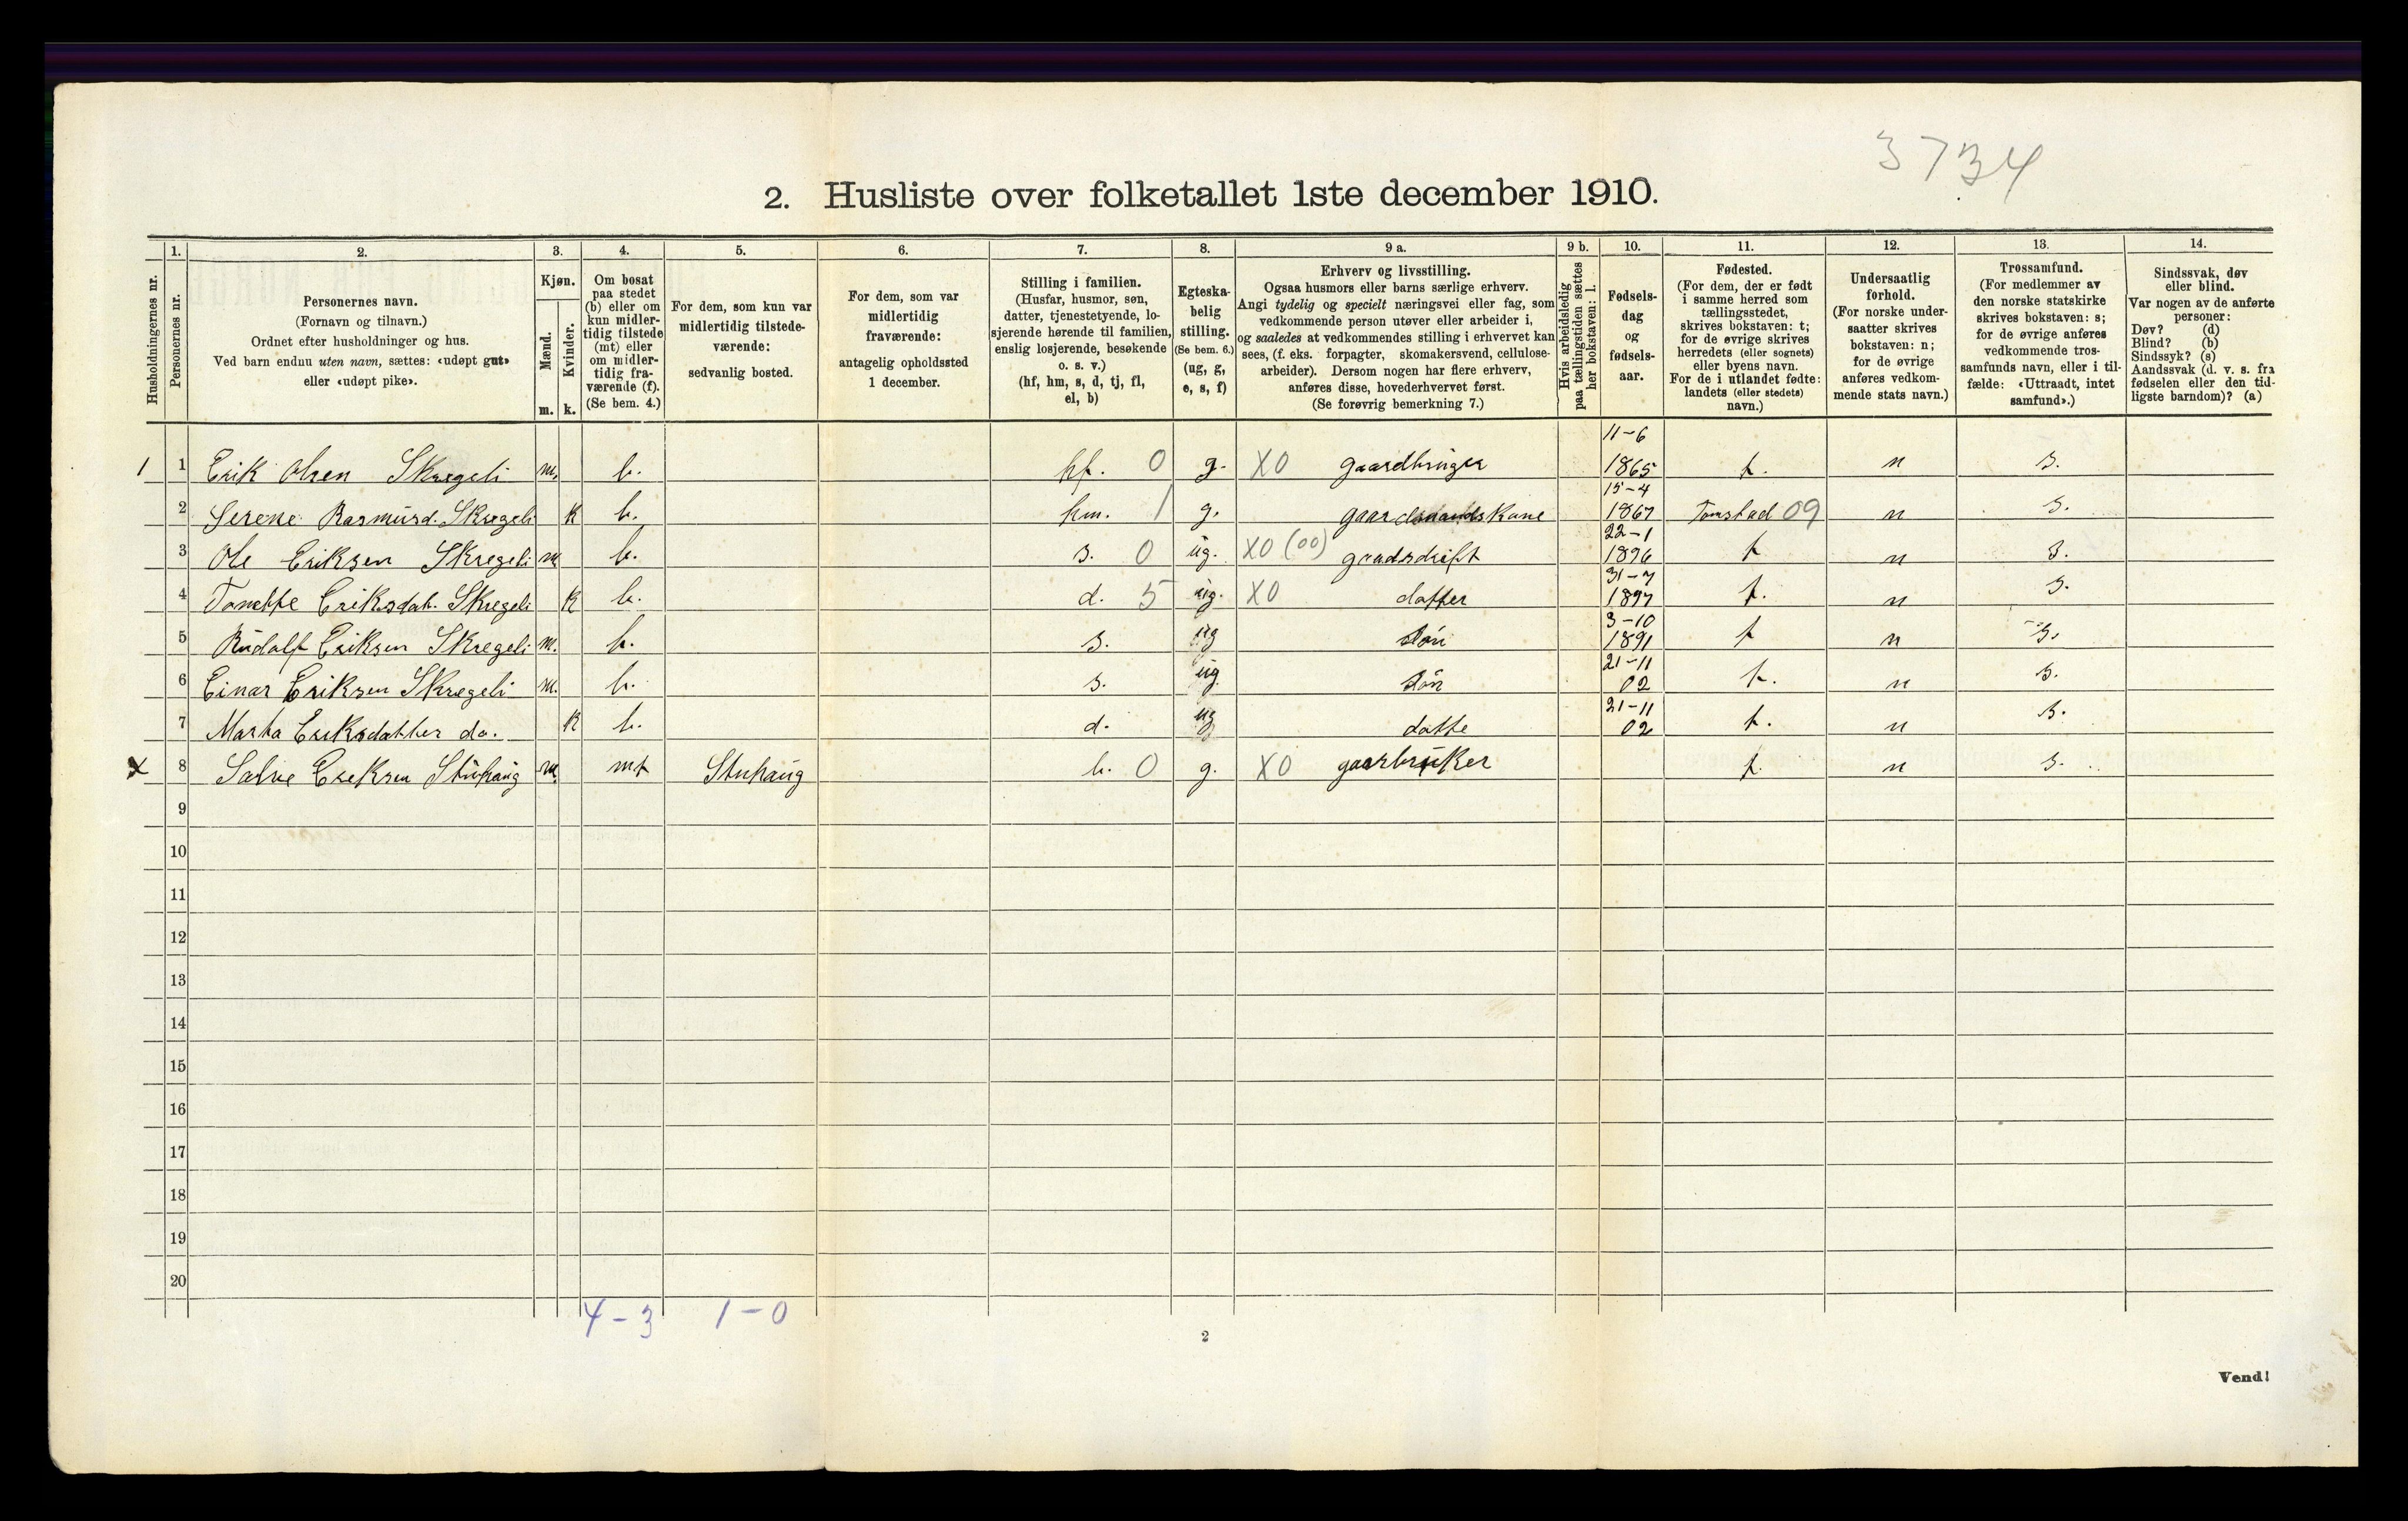 3734
2. Husliste over folketallet 1ste december 1910.
Husholdningernes nr.
1. Personernes nr.
2. Personernes navn.
(Fornavn og tilnavn.)
Ordnet efter husholdninger og hus.
Ved barn endnu uten navn, sættes: «udøpt gut»
eller «udøpt pike».
3. Kjøn.
Mænd. m.
Kvinder. k.
4. Om bosat
paa stedet
(b) eller om
kun midler-
tidig tilstede
(mt) eller
om midler-
tidig fra-
værende (f).
(Se bem. 4.)
5. For dem, som kun var
midlertidig tilstede-
værende:
sedvanlig bosted.
6. For dem, som var
midlertidig
fraværende:
antagelig opholdssted
1 december.
7. Stilling i familien.
(Husfar, husmor, søn,
datter, tjenestetyende, lo-
sjerende hørende til familien,
enslig losjerende, besøkende
o. s. v.)
(hf, hm, s, d, tj, fl,
el, b)
8. Egteska-
belig
stilling.
(Se bem. 6.)
(ug, g,
e, s, f)
9 a. Erhverv og livsstilling.
Ogsaa husmors eller barns særlige erhverv.
Angi tydelig og specielt næringsvei eller fag, som
vedkommende person utøver eller arbeider i,
og saaledes at vedkommendes stilling i erhvervet kan
sees, (f. eks. forpagter, skomakersvend, cellulose-
arbeider). Dersom nogen har flere erhverv,
anføres disse, hovederhvervet først.
(Se forøvrig bemerkning 7.)
9 b. Hvis arbeidsledig
paa tællingstiden sættes
her bokstaven: l.
10. Fødsels-
dag
og
fødsels-
aar.
11. Fødested.
(For dem, der er født
i samme herred som
tællingsstedet,
skrives bokstaven: t;
for de øvrige skrives
herredets (eller sognets)
eller byens navn.
For de i utlandet fødte:
landets (eller stedets)
navn.)
12. Undersaatlig
forhold.
(For norske under-
saatter skrives
bokstaven: n;
for de øvrige
anføres vedkom-
mende stats navn.)
13. Trossamfund.
(For medlemmer av
den norske statskirke
skrives bokstaven: s;
for de øvrige anføres
vedkommende tros-
samfunds navn, eller i til-
fælde: «Uttraadt, intet
samfund».)
14. Sindssvak, døv
eller blind.
Var nogen av de anførte
personer:
Døv? (d)
Blind? (b)
Sindssyk? (s)
Aandssvak (d. v. s. fra
fødselen eller den tid-
ligste barndom)? (a)
1 1 Erik Olsen Skregeli m. b. hf. 0 g. X0 gaardbruger 11-6 1865 t. n s.
2 Serene Rasmusd. Skregeli k b. hm. 1 g. gaardmands Kone 15-4 1867 Tonstad 09 n s.
3 Ole Eriksen Skregeli m b. s. 0 ug. X0 (00) gaardsdrift 22-1 1896 t n s.
4 Tonette Eriksdat. Skregeli k b. d. 5 ug. X0 datter 31-7 1897 t. n s.
5 Rudolf Eriksen Skregeli m. b. s. ug søn 3-10 1891 t n s.
6 Einar Eriksen Skregeli m. b. s. ug søn 21-11 02 t. n s.
7 Marta Eriksdatter do. k b. d. ug datte 21-11 02 t. n s.
X 8 Salve Ereksen Stuhaug m. mt Stuhaug b. 0 g. X0 gaarbruker t. n s.
9
10
11
12
13
14
15
16
17
18
19
20
4-3 1-0
2
Vend!